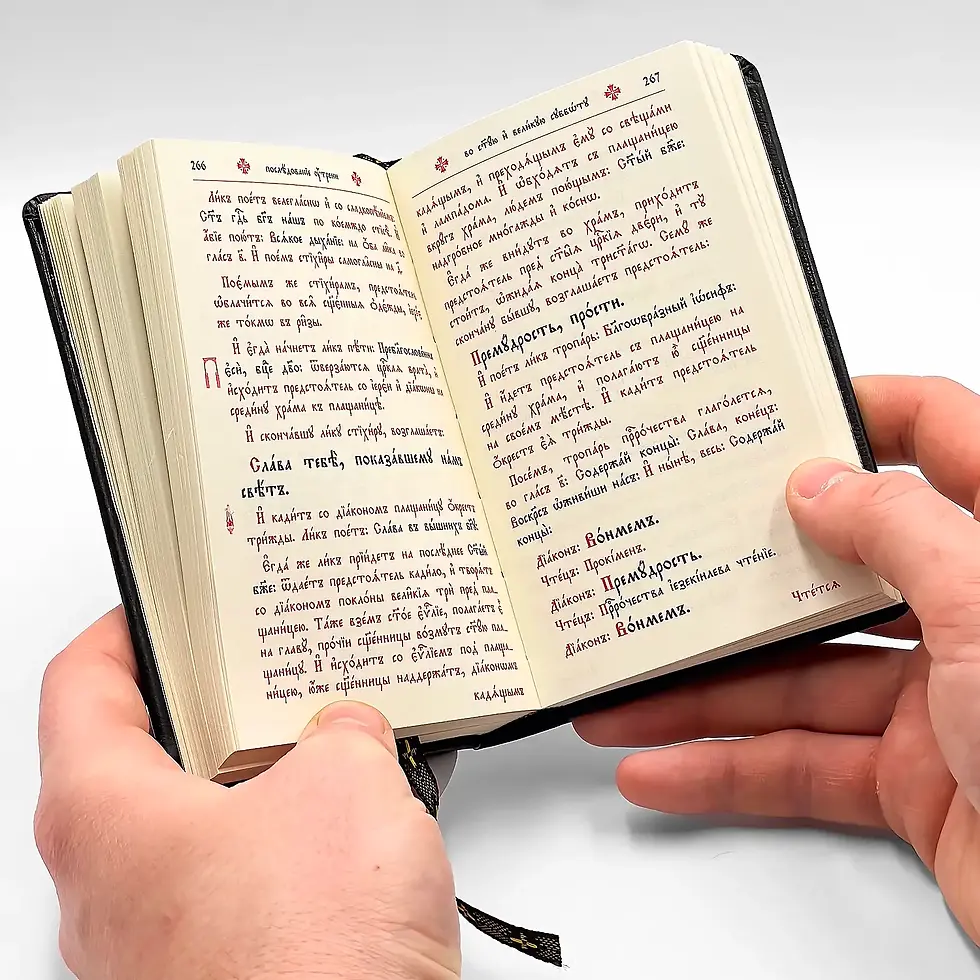 266 послѣдованїе ᲂу҆́трени
Ли́къ пое́тъ велегла́снѡ и҆ со сладкопѣ́нїемъ:
Ст҃ъ гдⷭ҇ь бг҃ъ на́шъ по ко́емждо стїсѣ̀. И҆
а҆́бїе пою́тъ: Всѧ́кое дыха́нїе: на ѻ҆́ба ли́ка во
гла́съ в҃. И҆ пое́мъ стїхи҄ры самогла̑сны на д҃.
Пое́мымъ же стїхи́рамъ, предстоѧ́тель
ѡ҆блачи́тсѧ во всѧ̑ сщ҃є́нныѧ ѻ҆дє́жды, і҆ере́є
же то́кмѡ въ ри̑зы.
И҆ є҆гда̀ начне́тъ ли́къ пѣ́ти: Преблагослове́нна
є҆сѝ, бцⷣе дв҃о: ѿверза́ютсѧ цр҃кѡ́наѧ врата̀, и҆
и҆схо́дитъ предстоѧ́тель со і҆ерє́и и҆ дїа́кѡны на
среди́ну хра́ма къ плащани́цѣ.
И҆ сконча́вшу ли́ку стїхи́ру, возглаша́етъ:
Сла́ва тебѣ̀, показа́вшему на́мъ
свѣ́тъ.
И҆ кади́тъ со дїа́кономъ плащани́цу ѻ҆́крестъ
три́жды. Ли́къ пое́тъ: Сла́ва въ вы́шнихъ бг҃ꙋ:
Є҆гда́ же ли́къ прїи́детъ на послѣ́днее Ст҃ы́й
бж҃е: ѿдае́тъ предстоѧ́тель кади́ло, и҆ творѧ́тъ
со дїа́кономъ покло́ны вели̑кїѧ трѝ пред̾ пла-
щани́цею. Та́же взе́мъ ст҃о́е є҆ѵⷢ҇лїе, полага́етъ є҆̀
на главу̀, про́чїи сщ҃є́нницы во́змутъ ст҃у́ю пла-
щани́цу. И҆ и҆схо́дитъ со є҆ѵⷢ҇лїемъ под̾ плаща-
ни́цею, ю҆́же сщ҃є́нницы наддержа́тъ, дїа́кѡнѡмъ
кадѧ́щымъ
во ст҃ꙋ́ю и҆ вели́кꙋю сꙋббѡ́тꙋ 267
кадѧ́щымъ, и҆ преходѧ́щымъ є҆мꙋ̀ со свѣща́ми
и҆ лампа́дома. И҆ ѡ҆бхо́дѧтъ съ плащани́цею
вкрꙋ́гъ хра́ма, лю́демъ пою́щымъ: Ст҃ы́й бж҃е:
надгро́бное многа́жды и҆ ко́снѡ.
Є҆гда́ же вни́дꙋтъ во хра́мъ, прихо́дитъ
предстоѧ́тель пред̾ ст҃ы̑ѧ цр҃кїѧ двє́ри, и҆ тꙋ̀
стои́тъ, ѡ҆жида́ѧ конца̀ трист҃а́гѡ. Семꙋ́ же
сконча́нꙋ бы́вшꙋ, возглаша́етъ предстоѧ́тель:
Премꙋ́дрость, про́сти.
И҆ пое́тъ ли́къ тропа́рь: Бл҃гоѡбра́зный і҆ѡ́сифъ:
И҆ и҆́детъ предстоѧ́тель съ плащани́цею на
среди́нꙋ хра́ма, и҆ полага́ютъ ю҆̀ сщ҃є́нницы
на свое́мъ мѣ́стѣ. И҆ кади́тъ предстоѧ́тель
ѻ҆́крестъ є҆ѧ̀ три́жды.
Посе́мъ, тропа́рь прⷪ҇ро́чества глаго́летсѧ,
во гла́съ в҃: Содержа́й концы̀: Сла́ва, коне́цъ:
Воскр҃съ ѡ҆живи́ши на́съ: И҆ ны́нѣ, ве́сь: Содержа́й
концы̀:
Дїа́конъ: Во́нмемъ.
Чте́цъ: Проки́менъ.
Дїа́конъ: Премꙋ́дрость.
Чте́цъ: Прⷪ҇ро́чества і҆езекі́илева чте́нїе.
Дїа́конъ: Во́нмемъ.
Чте́тсѧ